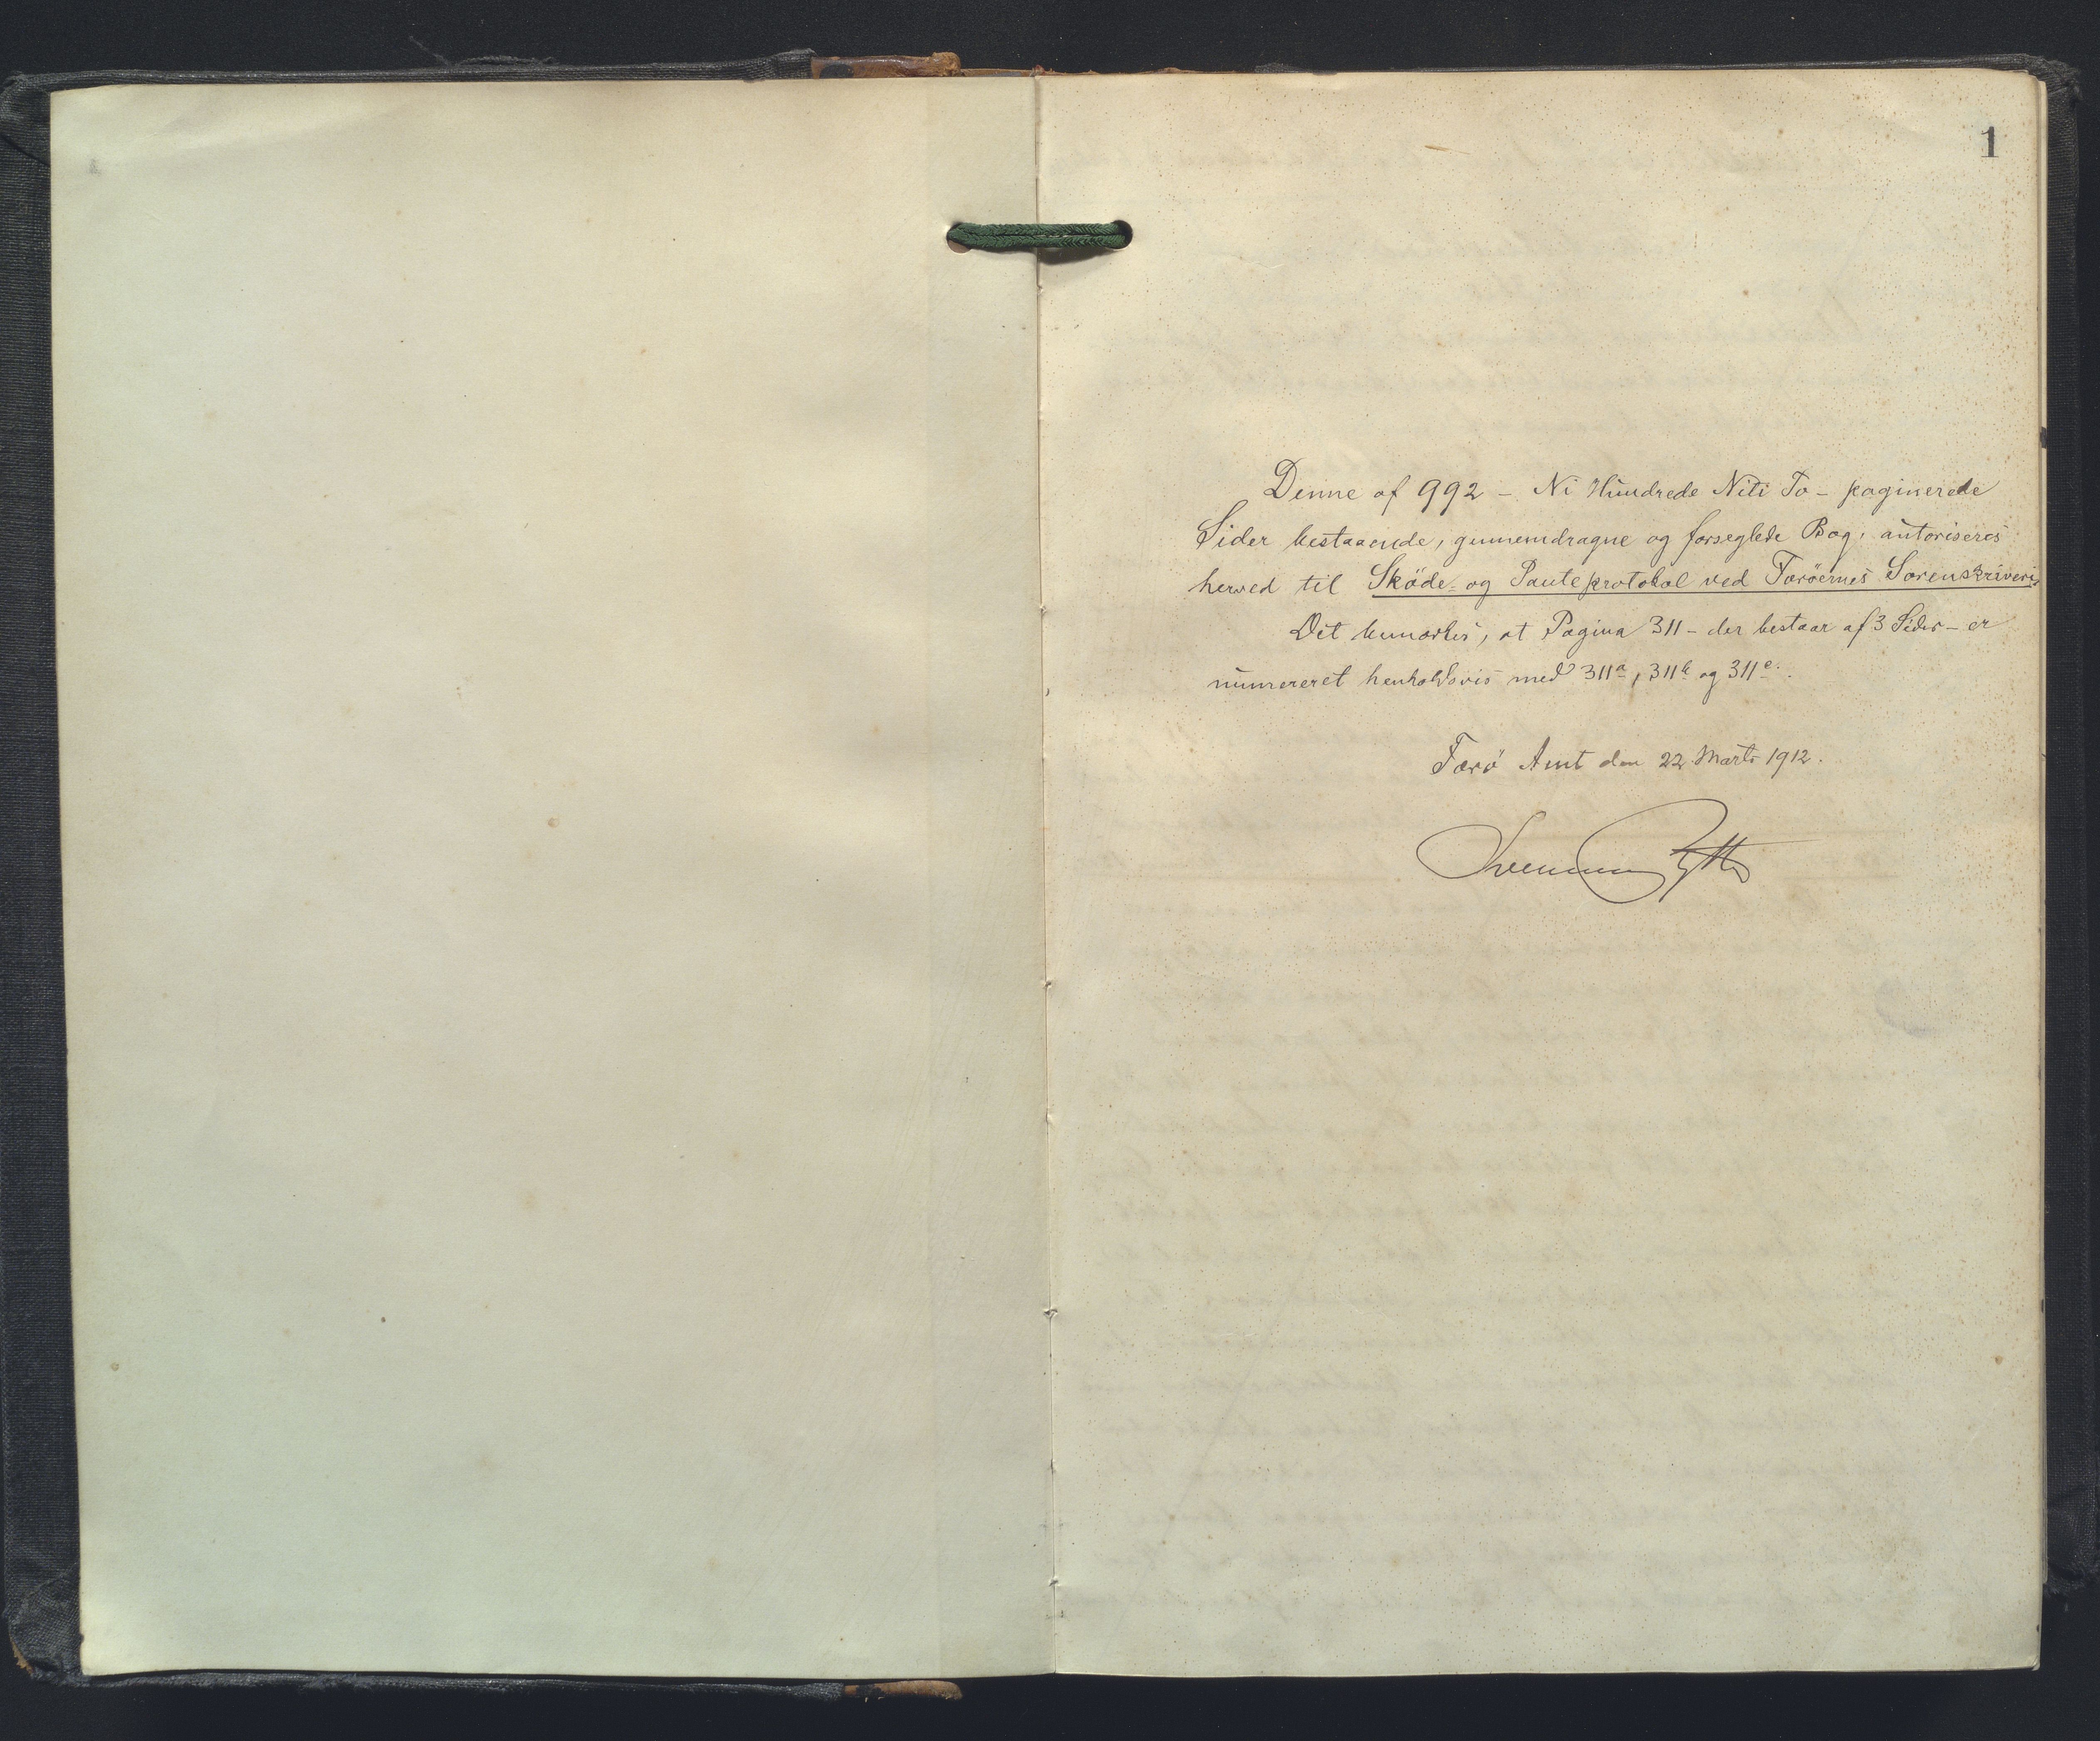 1
Denne af 992 - Ni Hundrede Niti To - paginerede
Sider bestaaende, gennemdragne og forseglede Bog, autoriseres
herved til Sköde- og Panteprotokol ved Færöernes Sorenskriveri.
Det bemærkes, at Pagina 311 - der bestaar af 3 Sider - er
numereret henholdsvis med 311a, 311b og 311c.
Færö Amt den 22 Marts 1912.
Svenning Rytter